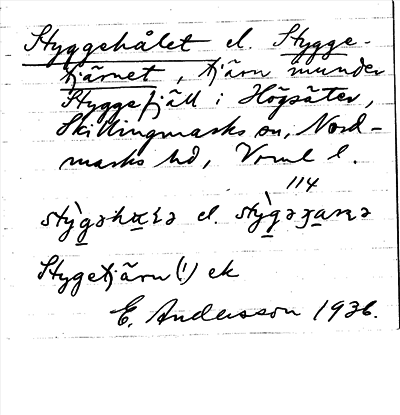 Styggehålet el. Stygge-
tjärnet, tjärn munder
Styggefjäll i Högsäter,
Skillingmarks sn, Nord-
marks hd, Vrml l.
114
Stygetjärn(!) ek
E. Andersson 1936.